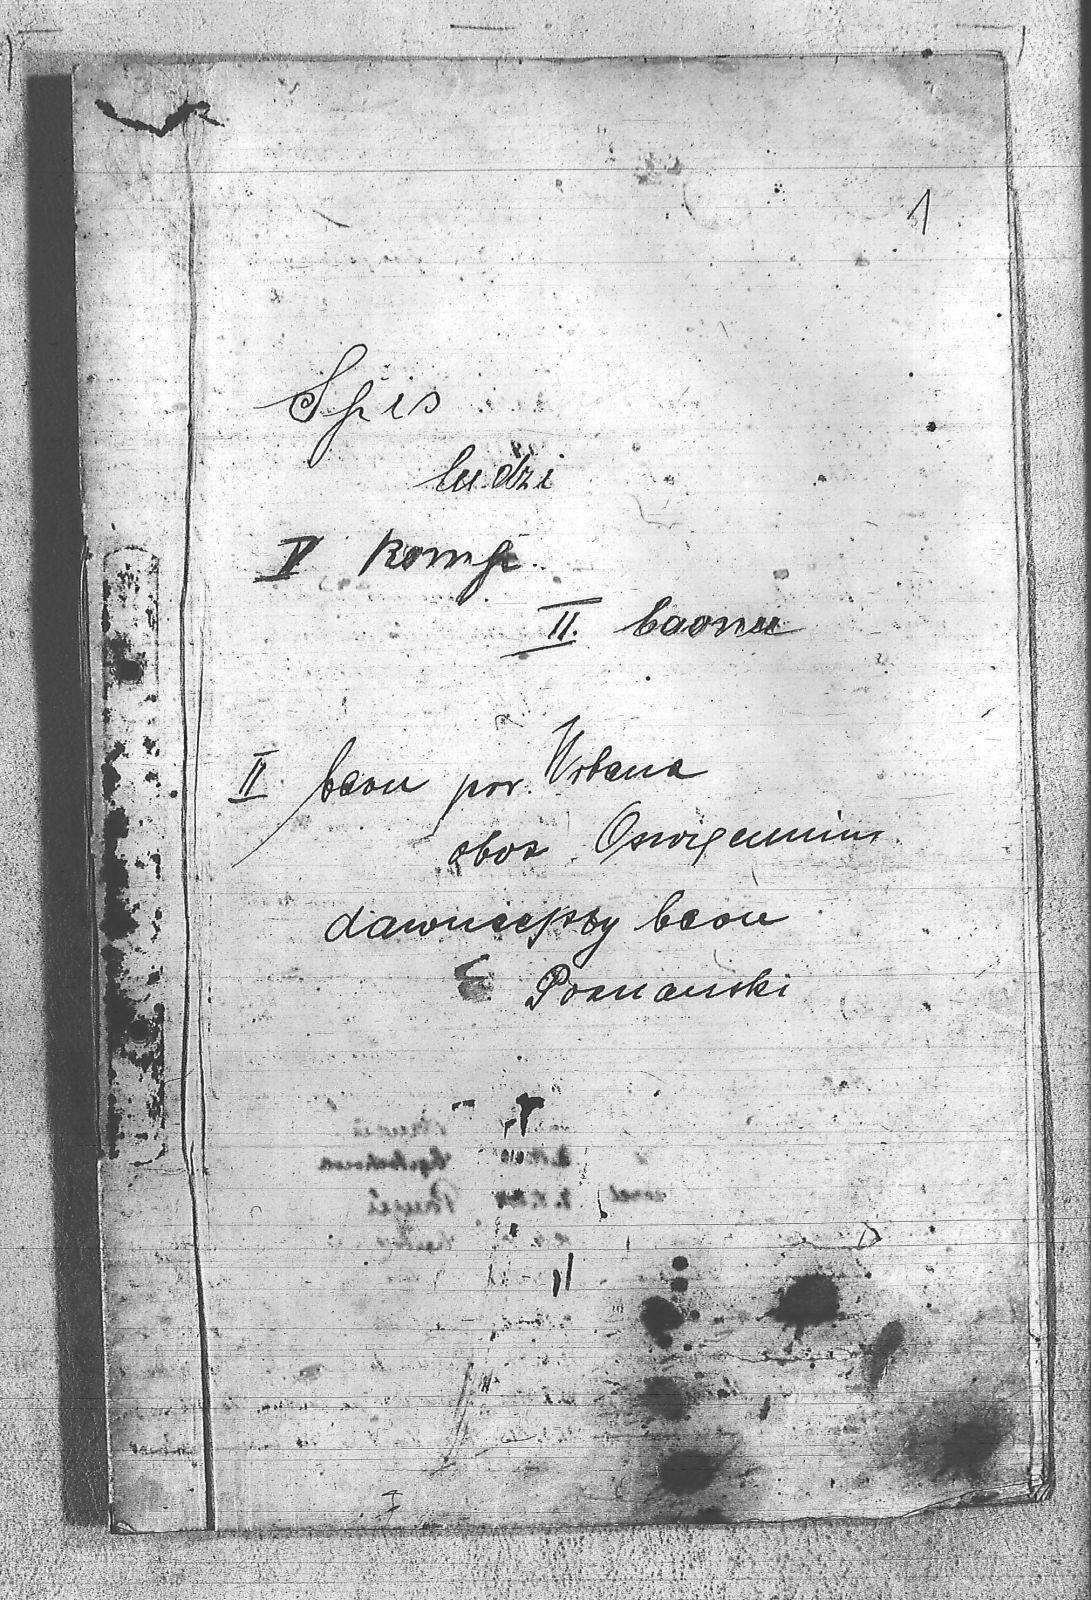 1
Spis
ludzi
V Komp.
II. baonu
II baon por. Urbana
obóz Oswięcimiu
dawniejszy baon
Poznański